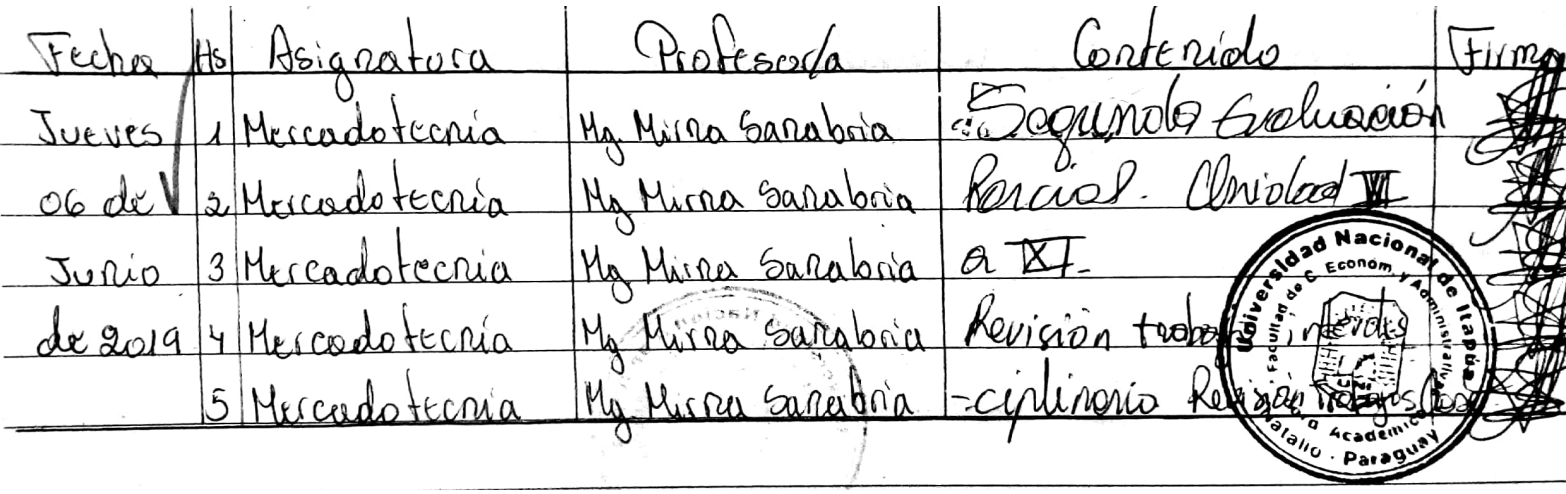 Fecha Hs Asignatura Profesor/a Contenido Firma
Jueves 1 Mercadotecnia Mg Mirna Sanabria Segunda Evaluación
06 de 2 Mercadotecnia Mg Mirna Sanabria Parcial. Unidad VI
Junio 3 Mercadotecnia Mg Mirna Sanabria a XI.
de 2019 4 Mercadotecnia Mg Mirna Sanabria Revisión
5 Mercadotecnia Mg Mirna Sanabria -ciplinario Revisión trabajos
Universidad Nacional de Itapúa
Facultad de C. Econom. y Administrativas
Academica
Natalio - Paraguay